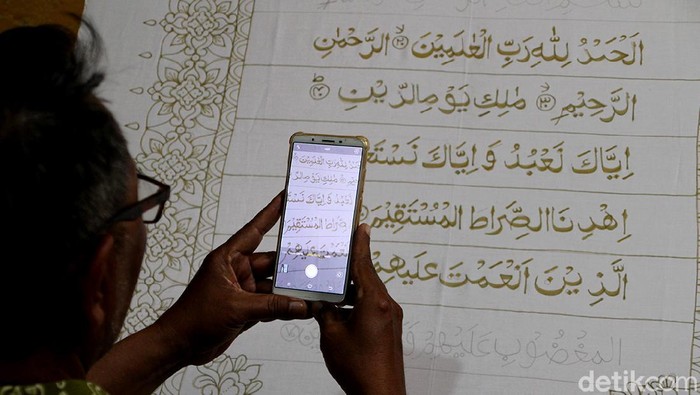 اَلْحَمْدُ لِلّٰهِ رَبِّ الْعٰلَمِيْنَ ٢ الرَّحْمٰنِ
الرَّحِيْمِ ٣ مٰلِكِ يَوْمِ الدِّيْنِ
اِيَّاكَ نَعْبُدُ وَاِيَّاكَ نَسْتَعـ
اِهْدِنَا الصِّرَاطَ الْمُسْتَقِيْمَ
الَّذِيْنَ اَنْعَمْتَ عَلَيْهِمْ
الْمَغْضُوْبِ عَلَيْهِمْ وَ
detikcom